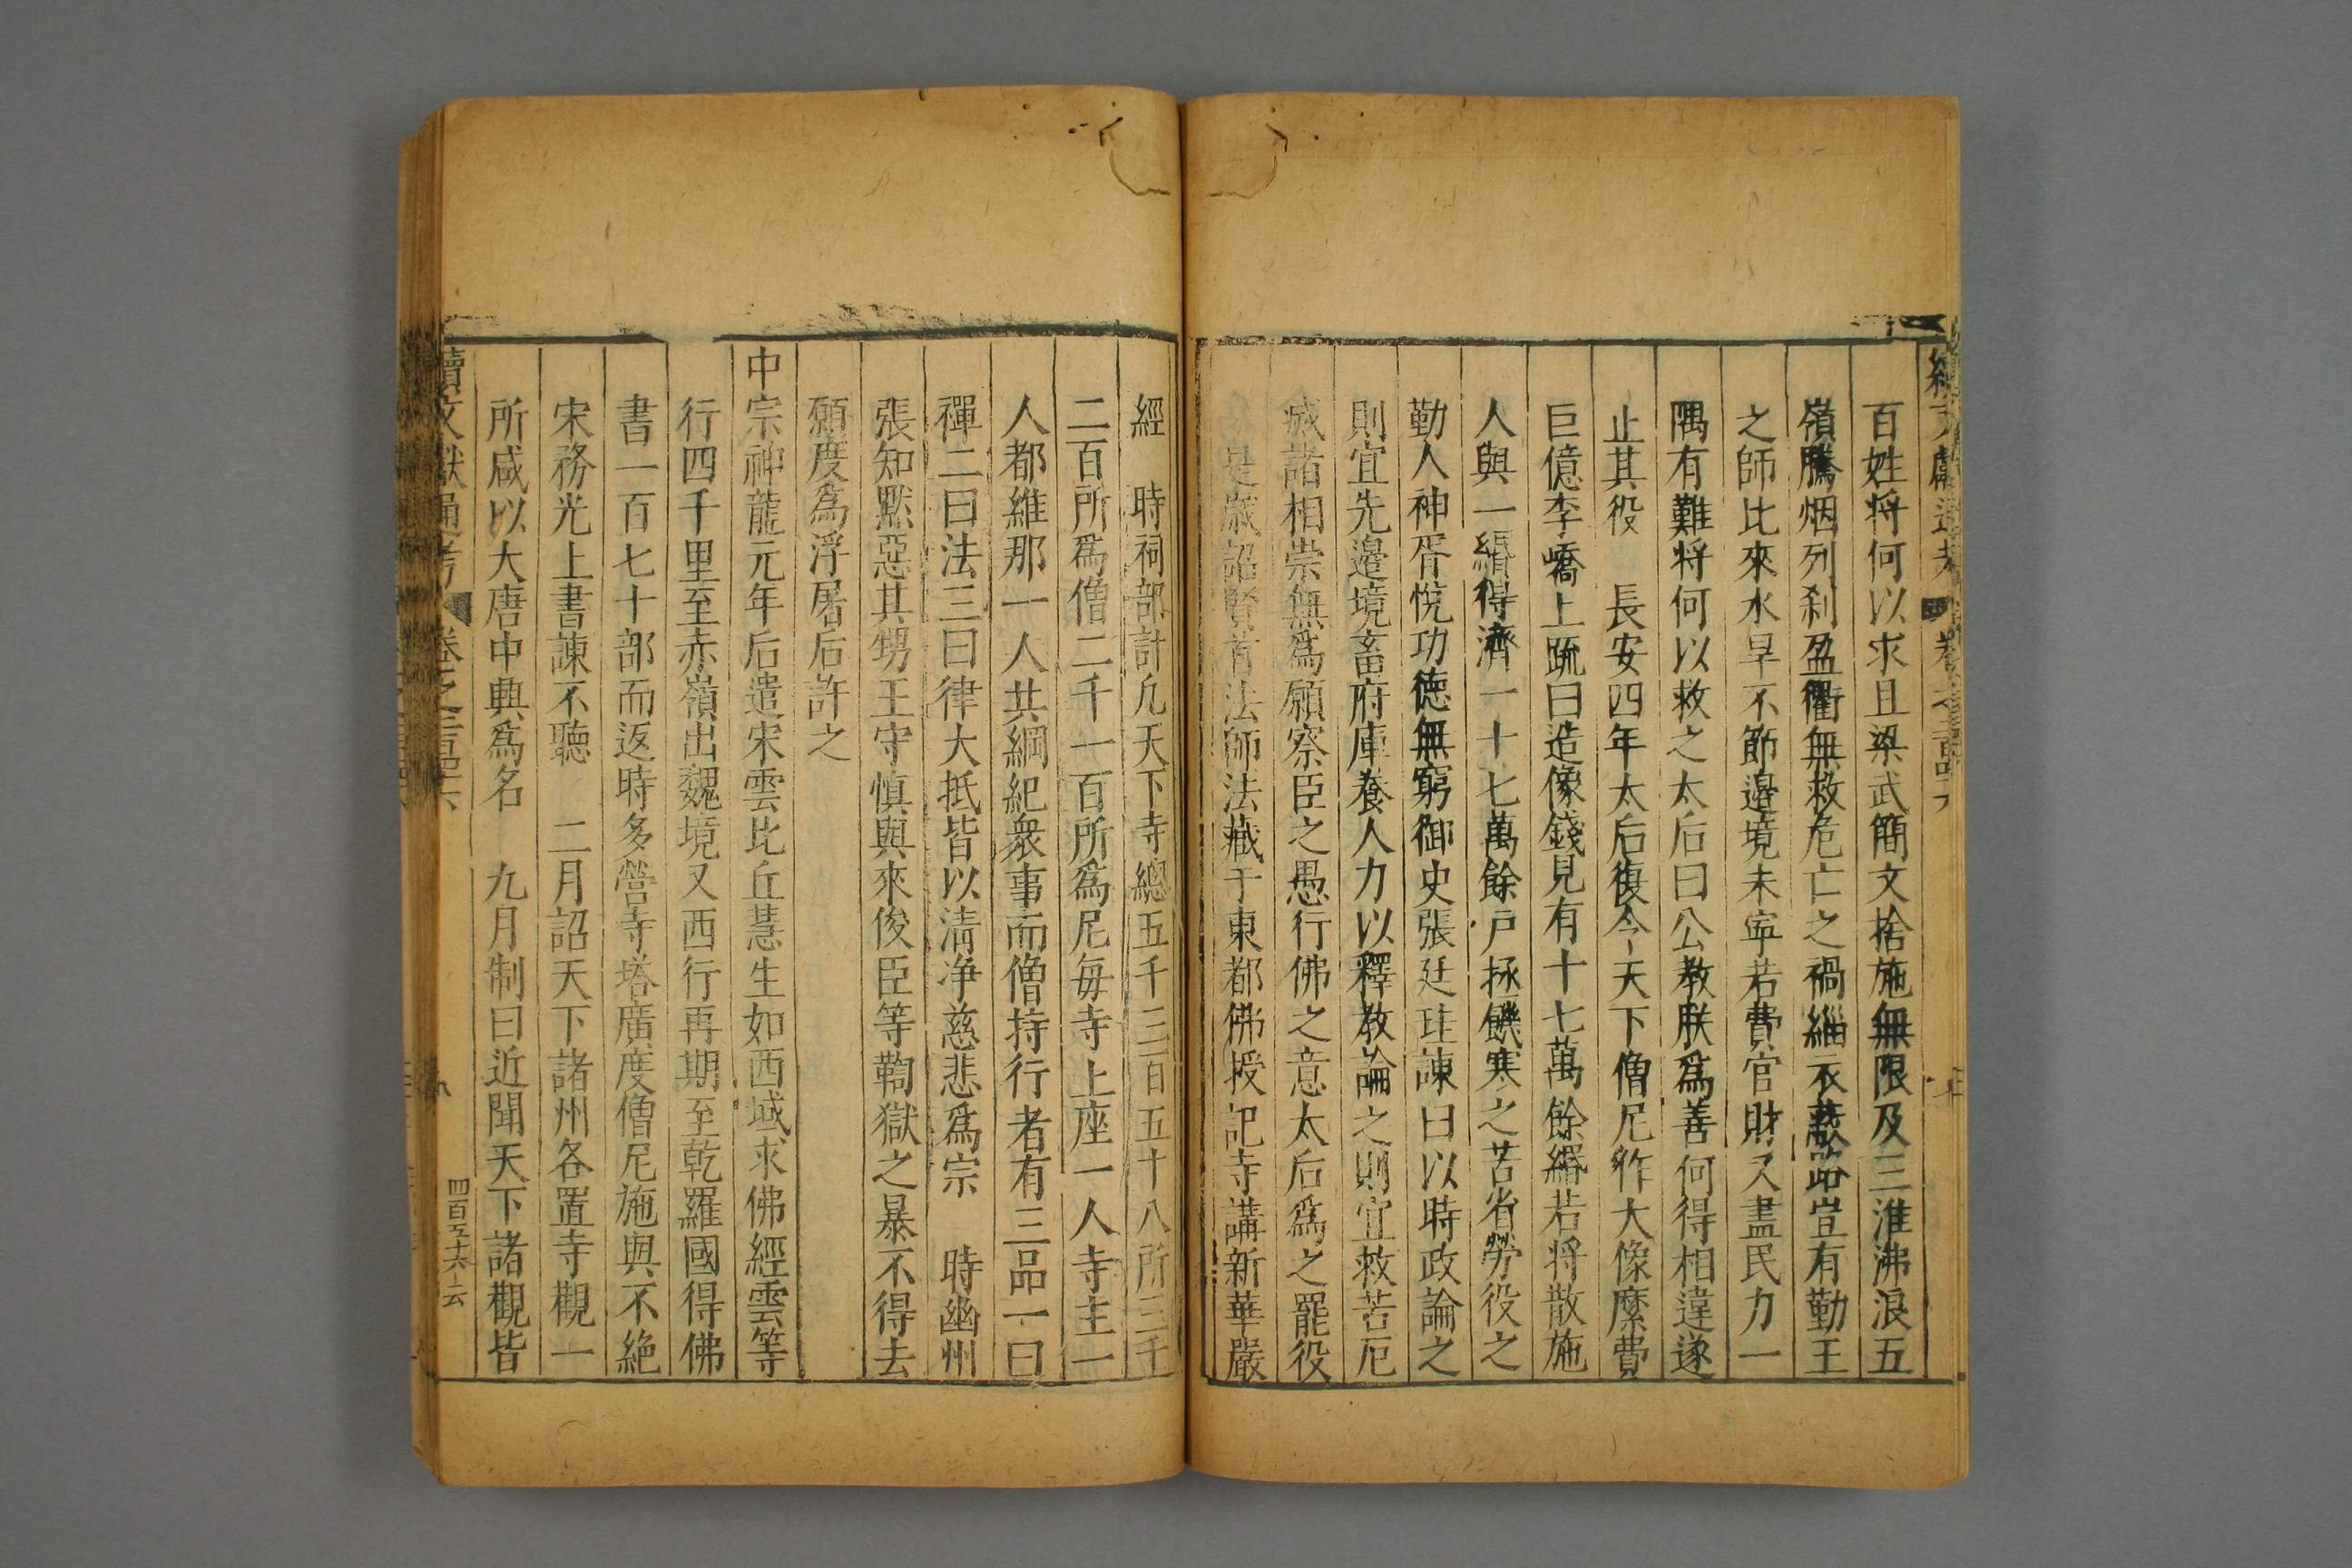 續文獻通考 卷之二百四十六
百姓將何以求且梁武簡文捨施無限及三淮沸浪五
嶺騰烟列刹盈衢無救危亡之禍緇衣蔽路豈有勤王
之師比來水旱不節邊境未寧若費官財又盡民力一
隅有難將何以救之太后曰公教朕爲善何得相違遂
止其役 長安四年太后復令天下僧尼作大像縻費
巨億李嶠上疏曰造像錢見有十七萬餘緡若將散施
人與一緡得濟一十七萬餘户拯饑寒之苦省勞役之
勤人神胥悅功德無窮御史張廷珪諫曰以時政論之
則宜先邊境畜府庫養人力以釋教論之則宜救苦厄
滅諸相崇無爲願察臣之愚行佛之意太后爲之罷役
是歲詔賢首法師法藏于東都佛授記寺講新華嚴
經 時祠部計凢天下寺總五千三百五十八所三千
二百所爲僧二千一百所爲尼每寺上座一人寺主一
人都維那一人共綱紀衆事而僧持行者有三品一曰
禪二曰法三曰律大抵皆以清净慈悲爲宗 時幽州
張知默惡其甥王守慎與來俊臣等鞫獄之暴不得去
願度爲浮屠后許之
中宗神龍元年后遣宋雲比丘慧生如西域求佛經雲等
行四千里至赤嶺出魏境又西行再期至乾羅國得佛
書一百七十部而返時多營寺塔廣度僧尼施與不絶
宋務光上書諫不聽 二月詔天下諸州各置寺觀一
所咸以大唐中興爲名 九月制曰近聞天下諸觀皆
續文獻通考 卷之二百四十六
四百五十六